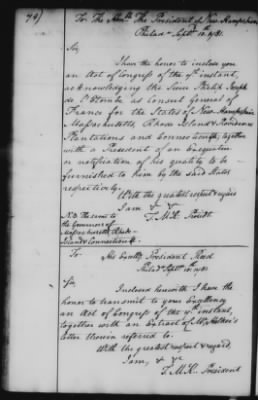 To The Honble The President of New Hampshire
Philada Septr 12. 1781.
Sir,
I have the honor to inclose you
an Act of Congress of the 7th instant,
acknowledging the Sieur Philip Joseph
de L'Etombe as Consul General of
France for the States of New Hampshire
Massachusetts, Rhode Island & Providence
Plantations and Connecticut, together
with a President of an Exequatur
or notification of his quality to be
furnished to him by the said States
respectively.
With the greatest respect &
I am &c
T. M.K. Presidt
N.B. The same to
the Governors of
Massachusetts, Rhode
Island & Connecticut
To His Excelly President Reed
Philada Septr 10. 1781
Sir
Inclosed herewith I have the
honor to transmit to your Excellency
an Act of Congress of the instant,
together with an Extract of Mr
letter therein referred to.
With the greatest respect & regard,
I am, & &c
T. M.K. President